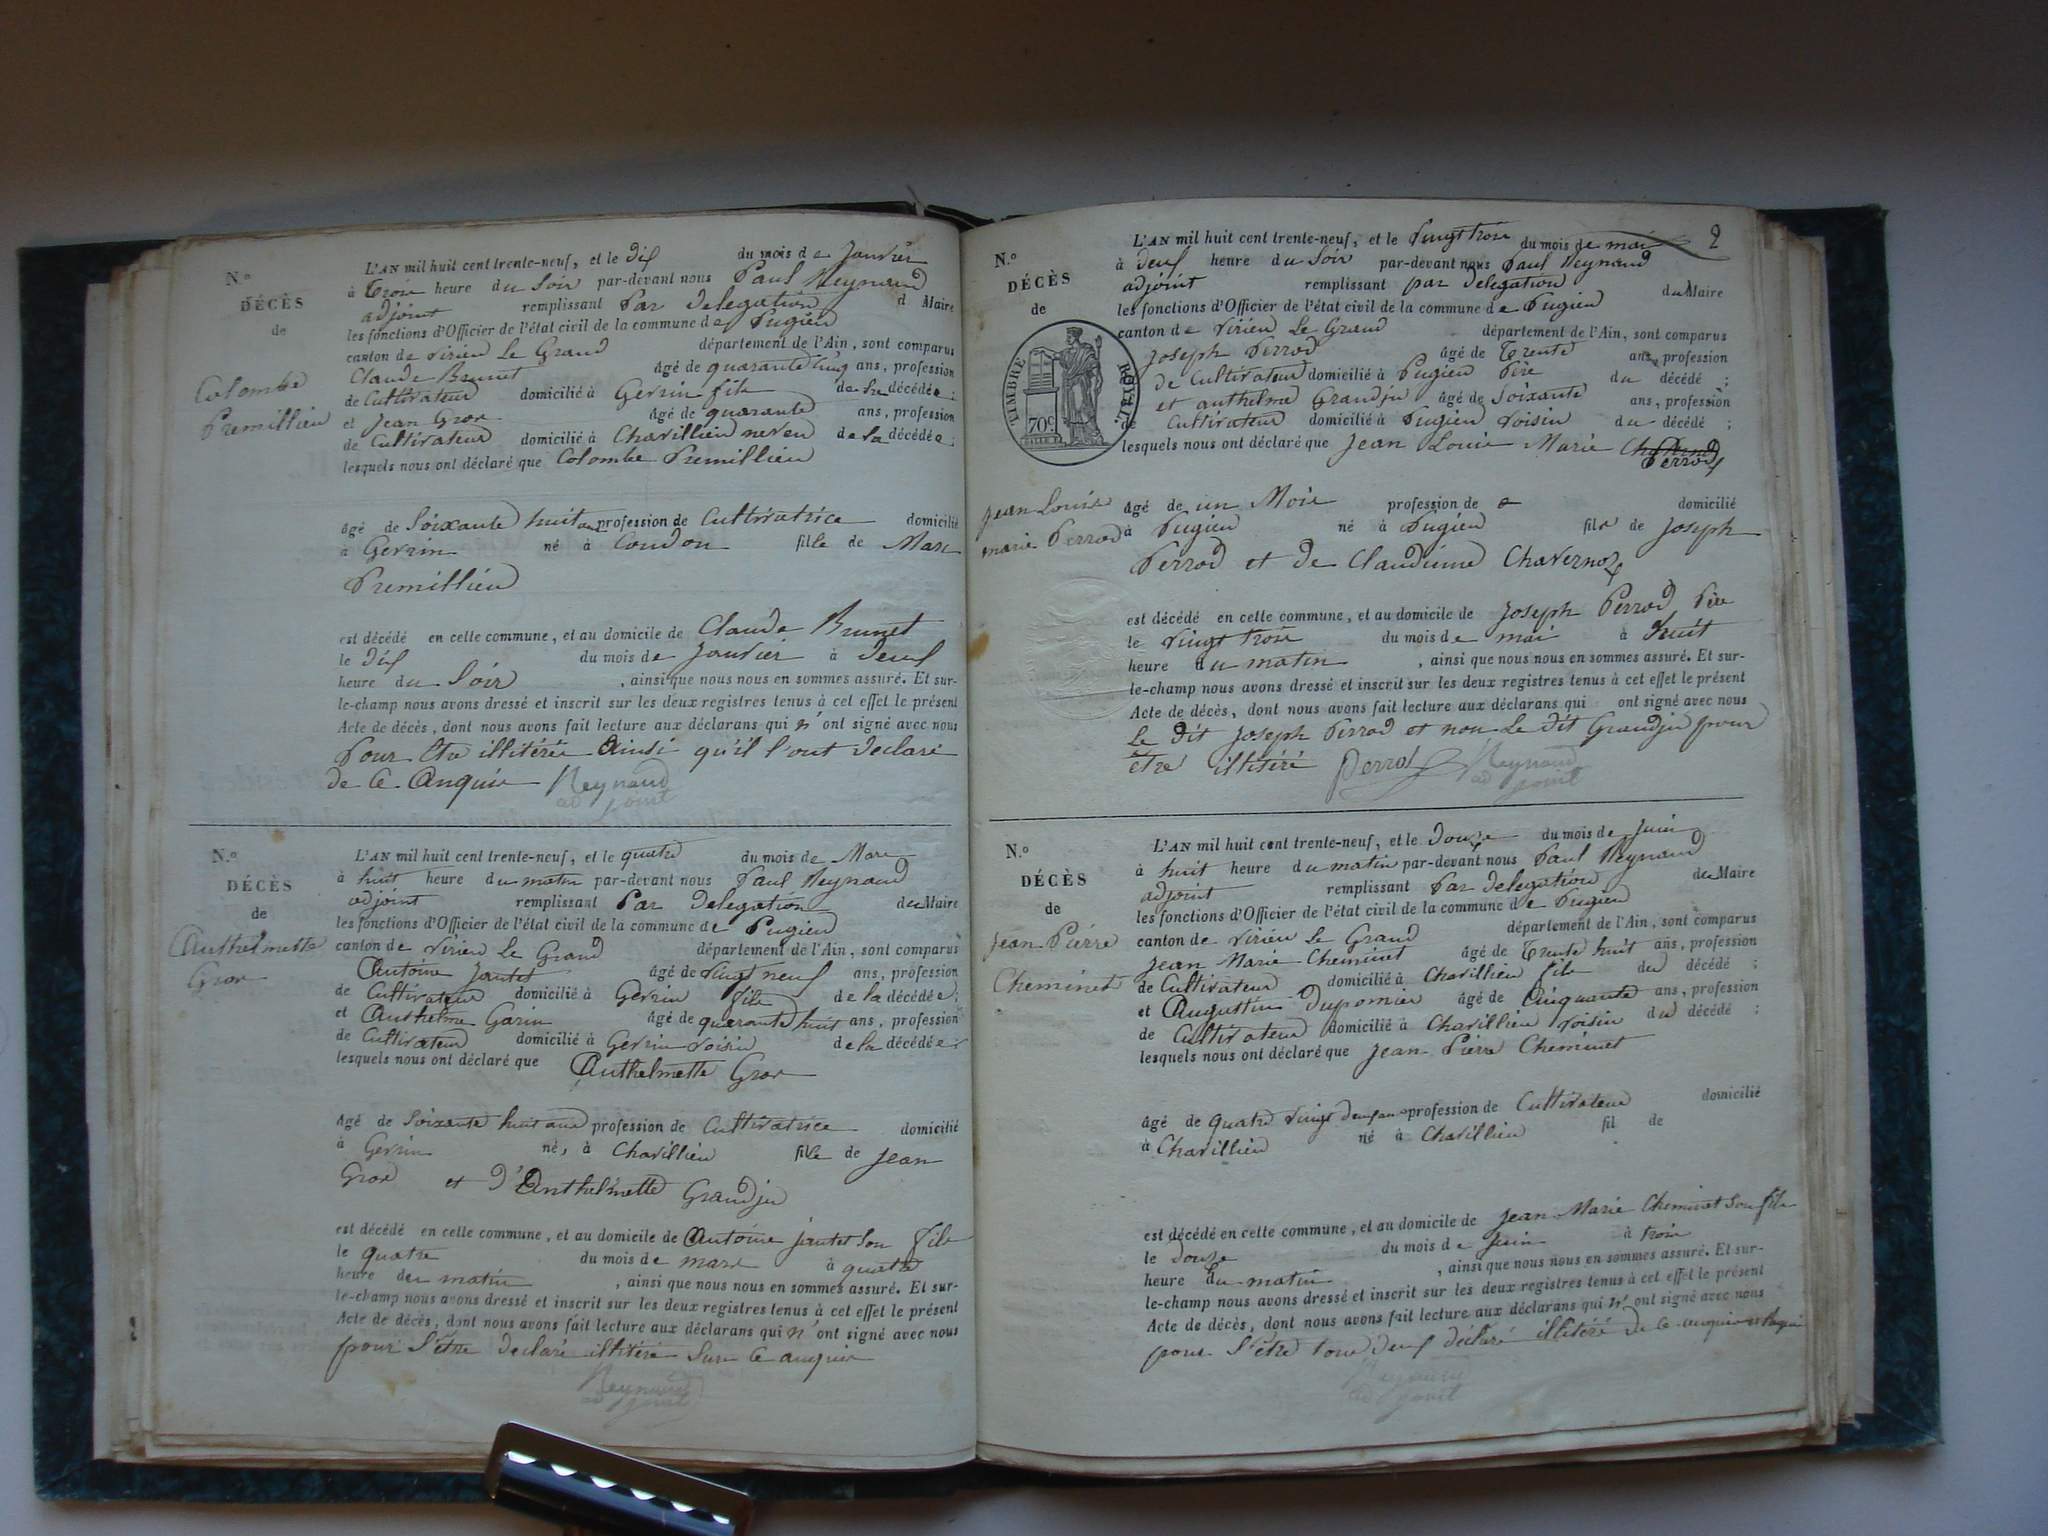 N.o
DÉCÈS
de
Colombe
Premillieu
L'AN mil huit cent trente-neuf, et le dix du mois de Janvier
à trois heure du Soir par-devant nous Paul Reynaud
adjoint remplissant Par delegation d Maire
les fonctions d'Officier de l'état civil de la commune de Pugieu
canton de Virieu Le Grand département de l'Ain, sont comparus
Claude Brunet âgé de quarante cinq ans, profession
de Cultivateur domicilié à Gevrin fils de la décédée ;
et Jean Gros âgé de quarante ans, profession
de Cultivateur domicilié à Chavillieu neveu de la décédée ;
lesquels nous ont déclaré que Colombe Premillieu
âgé de Soixante huit ans profession de Cultivatrice domicilié
à Gevrin né à Coudon fille de Marc
Premillieu
est décédé en cette commune, et au domicile de Claude Brunet
le dix du mois de Janvier à deux
heure du Soir , ainsi que nous nous en sommes assuré. Et sur-
le-champ nous avons dressé et inscrit sur les deux registres tenus à cet effet le présent
Acte de décès, dont nous avons fait lecture aux déclarans qui n'ont signé avec nous
Pour être illitéré Ainsi qu'il l'ont déclaré
de Ce Anquis Reynaud
adjoint
N.o
DÉCÈS
de
Anthelmette
Gros
L'AN mil huit cent trente-neuf, et le quatre du mois de Mars
à huit heure du matin par-devant nous Paul Reynaud
adjoint remplissant Par delegation du Maire
les fonctions d'Officier de l'état civil de la commune de Pugieu
canton de Virieu Le Grand département de l'Ain, sont comparus
Antoine Jantet âgé de vingt neuf ans, profession
de Cultivateur domicilié à Gevrin fils de la décédée ;
et Anthelme Garin âgé de quarante huit ans, profession
de Cultivateur domicilié à Gevrin voisin de la décédée
lesquels nous ont déclaré que Anthelmette Gros
âgé de Soixante huit ans profession de Cultivatrice domicilié
à Gevrin né, à Chavillieu fille de Jean
Gros et d'Anthelmette Grandju
est décédé en cette commune, et au domicile de Antoine Jantet Son fils
le quatre du mois de mars à quatre
heure du matin , ainsi que nous nous en sommes assuré. Et sur-
le-champ nous avons dressé et inscrit sur les deux registres tenus à cet effet le présent
Acte de décès, dont nous avons fait lecture aux déclarans qui n'ont signé avec nous
pour S'être déclaré illitéré Sur Ce anquis
Reynaud
adjoint
2
N.o
DÉCÈS
de
TIMBRE ROYAL
70c
Jean Louis
marie Perrod
L'AN mil huit cent trente-neuf, et le vingt trois du mois de mai
à deux heure du Soir par-devant nous Paul Reynaud
adjoint remplissant par delegation du Maire
les fonctions d'Officier de l'état civil de la commune de Pugieu
canton de Virieu Le Grand département de l'Ain, sont comparus
Joseph Perrod âgé de Trente ans, profession
de Cultivateur domicilié à Pugieu Père du décédé ;
et anthelme Grandju âgé de Soixante ans, profession
de Cultivateur domicilié à Pugieu voisin du décédé ;
lesquels nous ont déclaré que Jean Louis Marie
Perrod
âgé de un Mois profession de domicilié
à Pugieu né à Pugieu fils de Joseph
Perrod et de Claudinne Chavernoz
est décédé en cette commune, et au domicile de Joseph Perrod Père
le vingt trois du mois de mai à huit
heure du matin , ainsi que nous nous en sommes assuré. Et sur-
le-champ nous avons dressé et inscrit sur les deux registres tenus à cet effet le présent
Acte de décès, dont nous avons fait lecture aux déclarans qui ont signé avec nous
Le dit Joseph Perrod et non Le dit Grandju pour
être illitéré Perrod Reynaud
adjoint
N.o
DÉCÈS
de
Jean Pierre
Cheminet
L'AN mil huit cent trente-neuf, et le Douze du mois de Juin
à huit heure du matin par-devant nous Paul Reynaud
adjoint remplissant Par delegation du Maire
les fonctions d'Officier de l'état civil de la commune de Pugieu
canton de Virieu Le Grand département de l'Ain, sont comparus
Jean Marie Cheminet âgé de Trente huit ans, profession
de Cultivateur domicilié à Chavillieu fils du décédé ;
et Augustin Dupomier âgé de Cinquante ans, profession
de Cultivateur domicilié à Chavillieu voisin du décédé ;
lesquels nous ont déclaré que Jean Pierre Cheminet
âgé de quatre vingt deux ans profession de Cultivateur domicilié
à Chavillieu né à Chavillieu fil de
est décédé en cette commune, et au domicile de Jean Marie Cheminet Son fils
le douze du mois de Juin à trois
heure du matin , ainsi que nous nous en sommes assuré. Et sur-
le-champ nous avons dressé et inscrit sur les deux registres tenus à cet effet le présent
Acte de décès, dont nous avons fait lecture aux déclarans qui n'ont signé avec nous
pour S'être tous deux déclaré illitéré de Ce anquis
Reynaud
adjoint